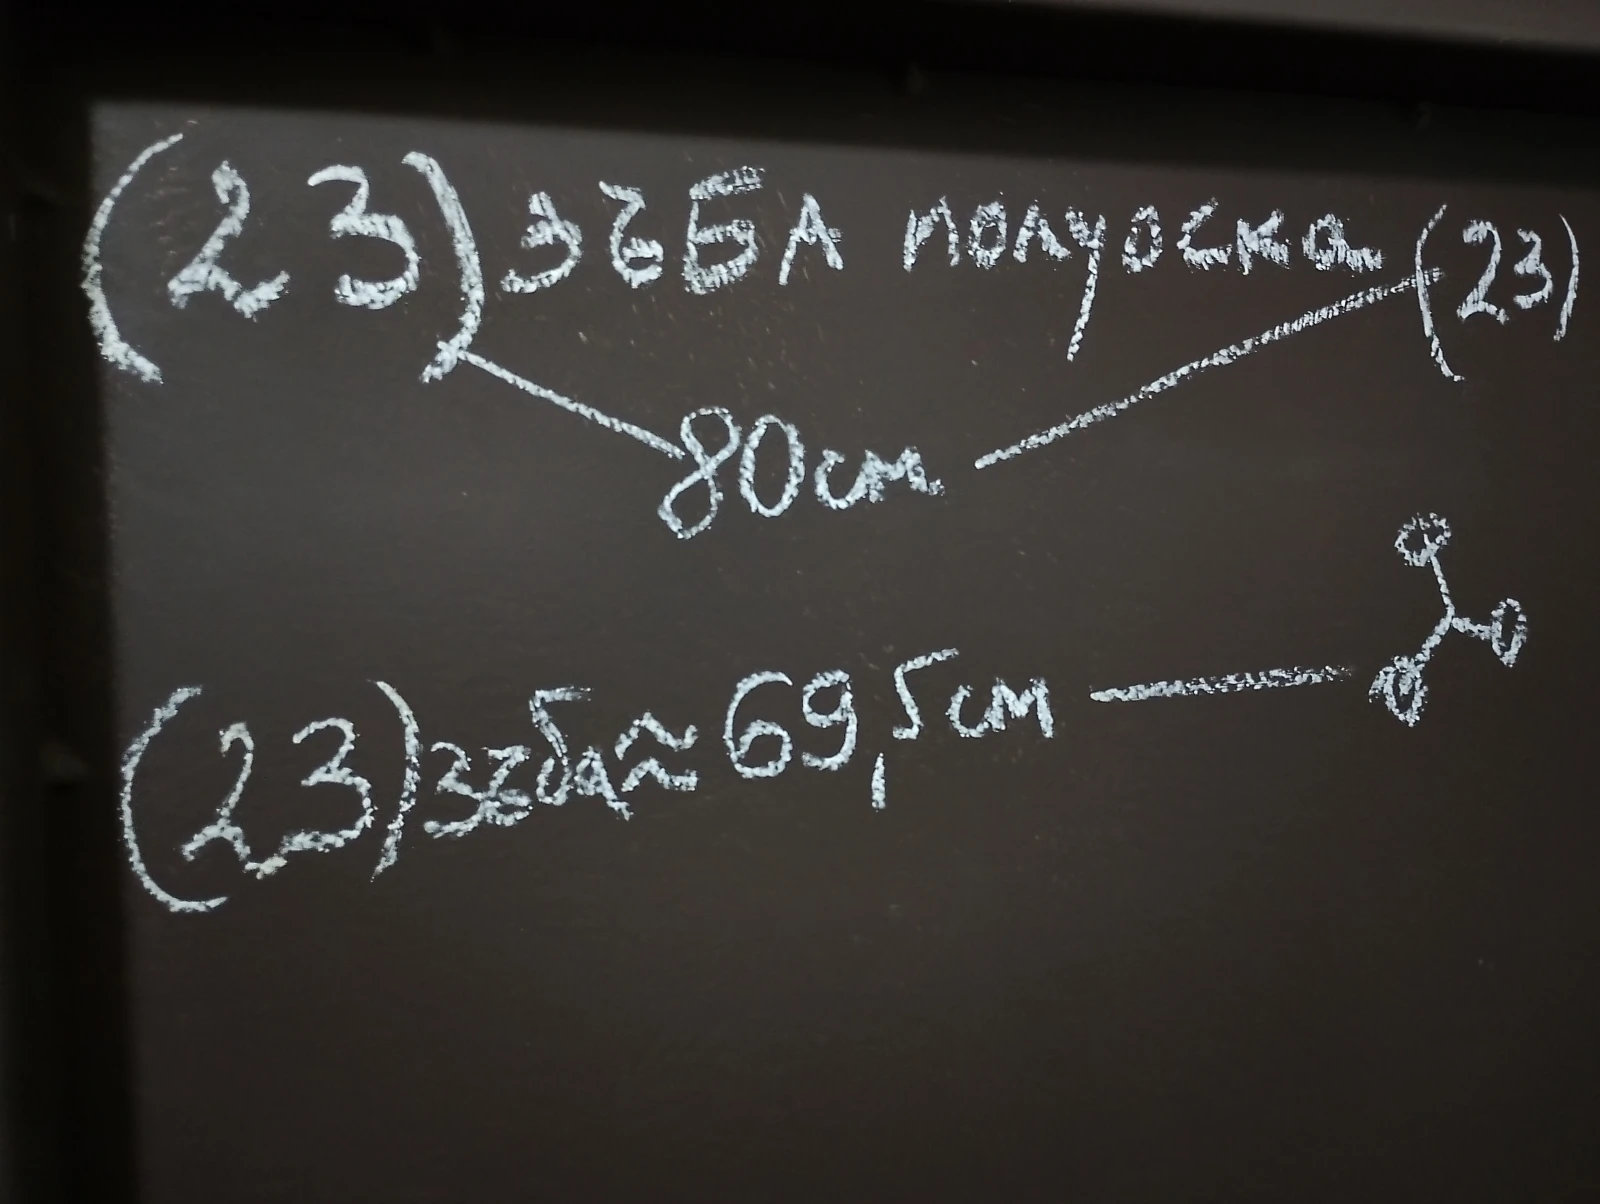 (23) зъБА полуоска (23)
80см
(23) зъба ≈ 69,5см